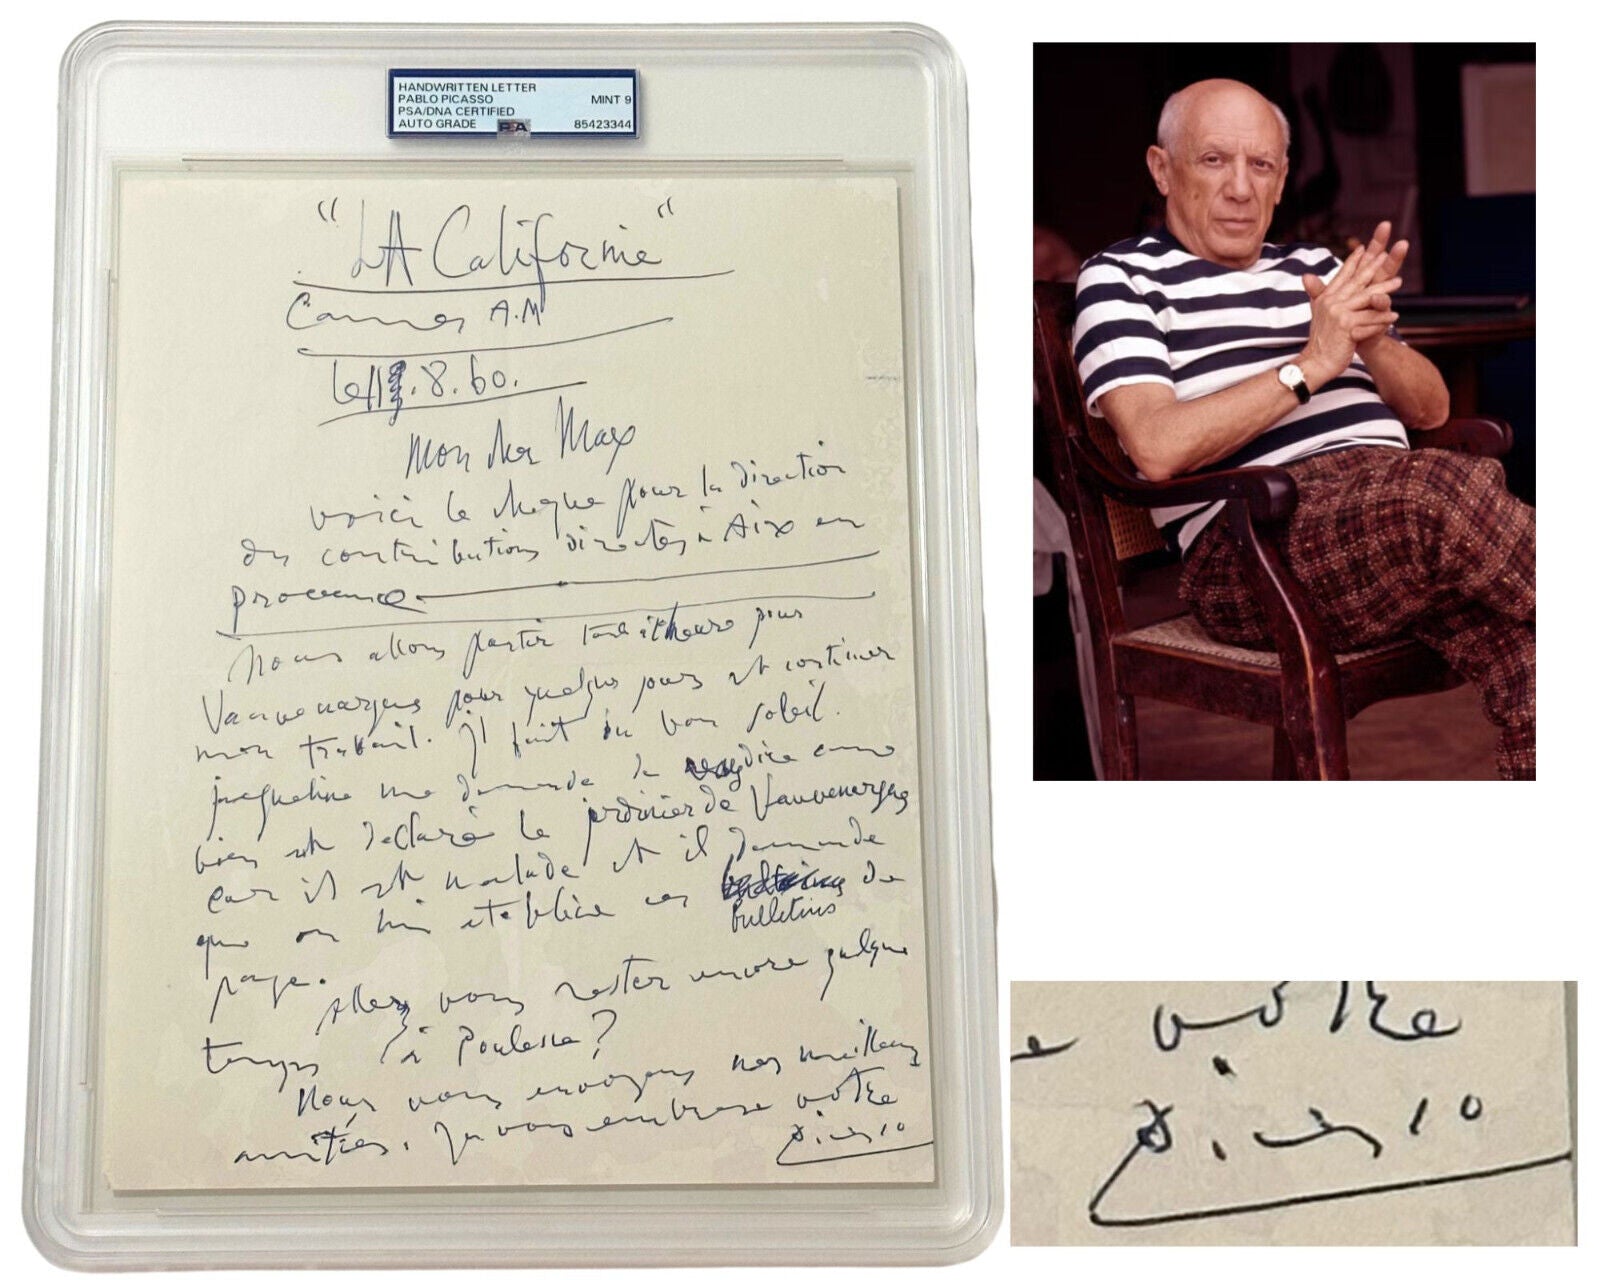 HANDWRITTEN LETTER
PABLO PICASSO MINT 9
PSA/DNA CERTIFIED
AUTO GRADE PSA 85423344
"LA Californie"
Cannes A.M
le .8.60.
Mon cher Max
voici le cheque pour la direction
des contributions directes à Aix en
provence
Nous allons partir tout à l'heure pour
Vauvenargues pour quelques jours et continuer
mon travail. Il fait un bon soleil.
jacqueline me demande de dire
bien est declaré le jardinier de Vauvenargues
car il est malade et il demande
que on lui ces de
bulletins
paye.
Allez vous rester encore quelque
temps à ?
Nous vous envoyons nos meilleures
amitiés. Je vous embrasse votre
Picasso
votre
Picasso